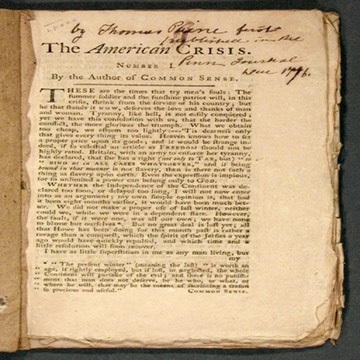 by Thomas Paine first
published in the
The American CRISIS.
Penn Journal
NUMBER I.
Dec 1776.
By the Author of COMMON SENSE.
THESE are the times that try men's souls: The
summer soldier and the sunshine patriot will, in this
crisis, shrink from the service of his country; but
he that stands it NOW, deserves the love and thanks of man
and woman. Tyranny, like hell, is not easily conquered;
yet we have this consolation with us, that the harder the
conflict, the more glorious the triumph. What we obtain
too cheap, we esteem too lightly:—'Tis dearness only
that gives every thing its value. Heaven knows how to set
a proper price upon its goods; and it would be strange in-
deed, if so celestial an article as FREEDOM should not be
highly rated. Britain, with an army to enforce her tyranny,
has declared, that she has a right (not only to TAX, but) "to
"BIND us in ALL CASES WHATSOEVER," and if being
bound in that manner is not slavery, than is there not such a
thing as slavery upon earth. Even the expression is impious,
for so unlimited a power can belong only to GOD.
WHETHER the Independence of the Continent was de-
clared too soon, or delayed too long, I will not now enter
into as an argument; my own simple opinion is, that had
it been eight months earlier, it would have been much bet-
ter. We did not make a proper use of last winter, neither
could we, while we were in a dependent state. However,
the fault, if it were one, was all our own; we have none
to blame but ourselves*. But no great deal is lost yet; all
that Howe has been doing for this month past is rather a
ravage than a conquest, which the spirit of the Jersies a year
ago would have quickly repulsed, and which time and a
little resolution will soon recover.
I have as little superstition in me as any man living, but
my
* "The present winter" (meaning the last) "is worth an
age, if rightly employed, but if lost, or neglected, the whole
Continent will partake of the evil; and there is no punish-
ment that man does not deserve, be he who, or what, or
where he will, that may be the means of sacrificing a season
so precious and useful." COMMON SENSE.